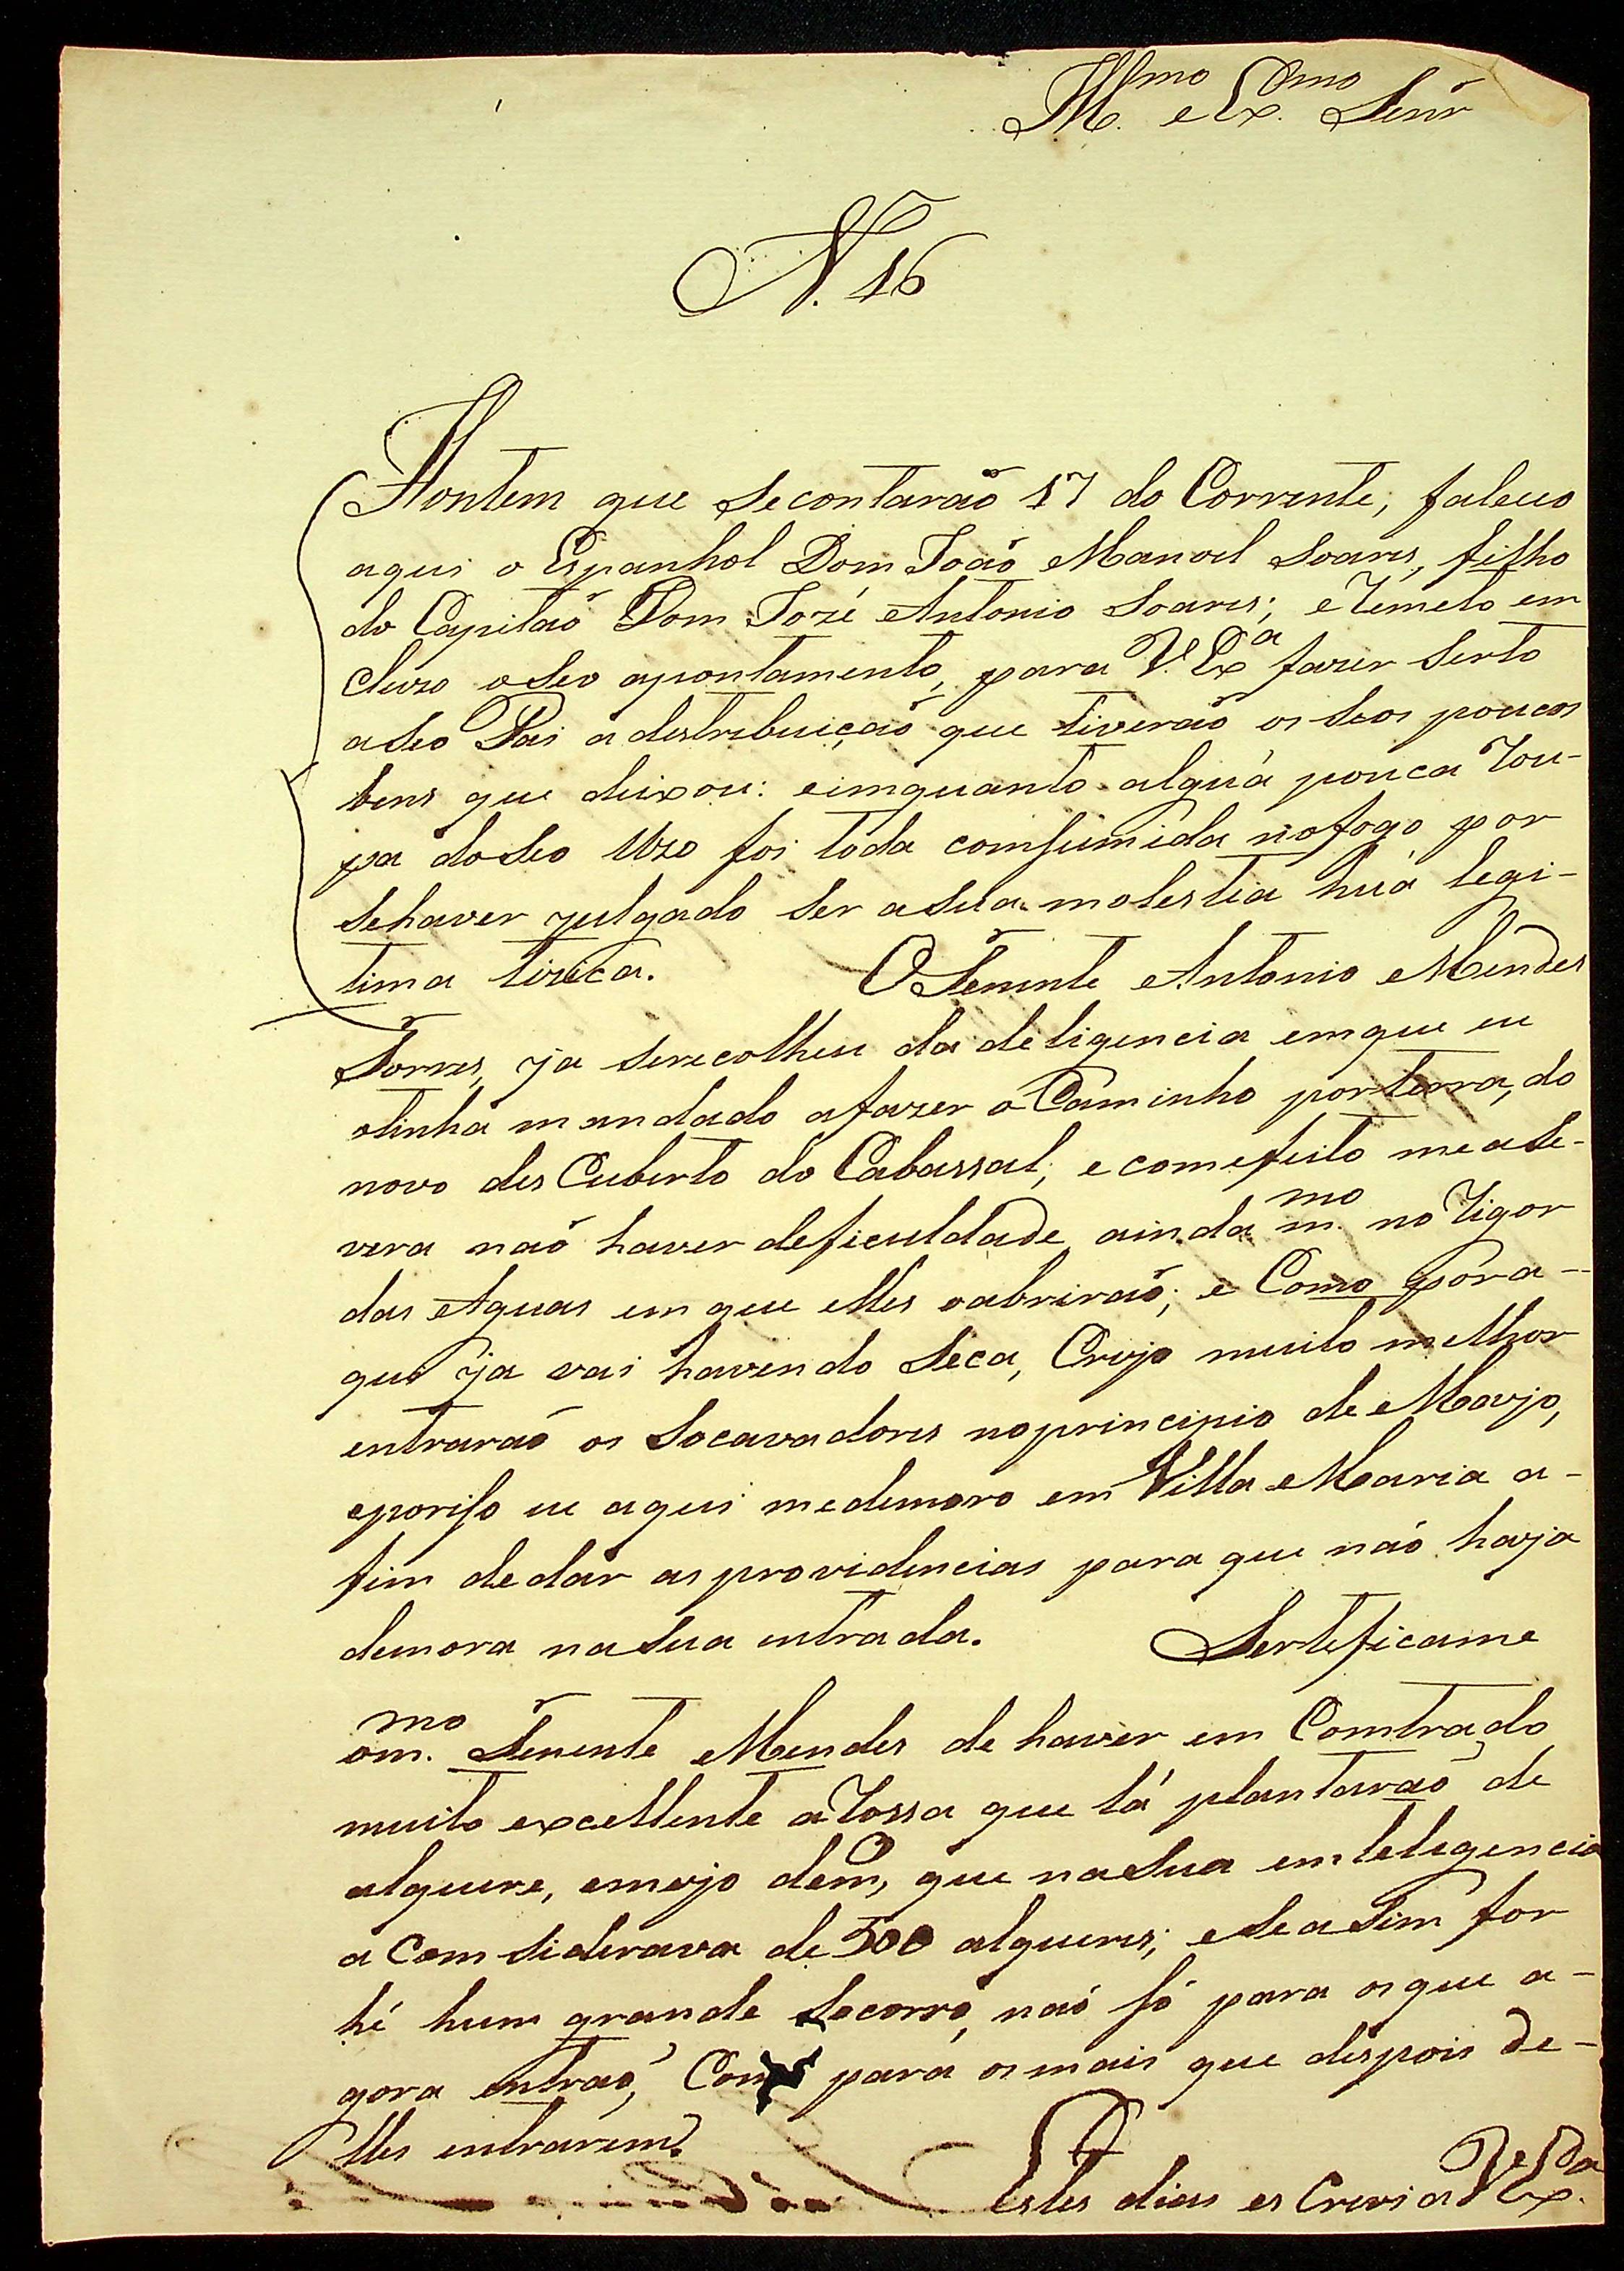 Ill.mo e Ex.mo Senr
N. 16
Hontem que secontaraõ 17 do Corrente, faleceo
aqui o Espanhol Dom Joaõ Manoel Soares, filho
do Capitaõ Dom Jozé Antonio Soares; e remeto em
cluzo oseo apontamento, para V. Ex.a fazer serto
aseo Pai adestribuiçaõ que tiveraõ os seos poucos
bens que deixou: eimquanto alguã pouca rou-
pa doseo Uzo foi toda comsumida nofogo por
sehaver julgado ser asua molestia huã legi-
tima tizica. O Tenente Antonio Mendes
Torres, ja serecolheu da deligencia emque eu
otinha mandado afazer o Caminho porterra, do
novo des Cuberto do Cabassal, e comefeito mease-
vera naõ haver deficuldade ainda m.mo no rigor
das Aguas em que elles oabriraõ; e Como pora-
qui ja vai havendo seca, Creyo muito melhor
entraraõ os Socavadores noprincipio de Mayo,
eporiso eu aqui medemoro em Villa Maria a-
fim dedar asprovidencias para que naõ haja
demora nasua entrada. Serteficame
om.mo Tenente Mendes de haver em Contrado
muito excellente aRossa que lá plantaraõ de
alqueire, emeyo dem, que nasua emteligencia
a Com siderava de 500 alqueires; eseasim for
hé hum grande socorro, naõ só para osque a-
gora entraõ, Como para osmais que dispois de-
lles entrarem.
Estes dias es Crevi a V. Ex.a